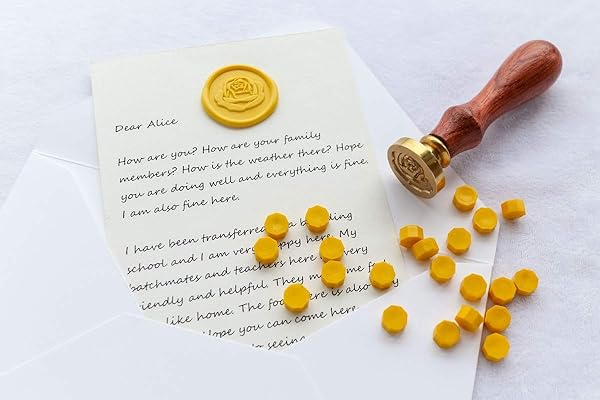 Dear Alice
How are you? How are your family
members? How is the weather there? Hope
you are doing well and everything is fine.
I am also fine here.
I have been transferred
school and I am very happy here. My
batchmates and teachers here very
friendly and helpful. They me feel
like home. The is also
Hope you can come here
seeing